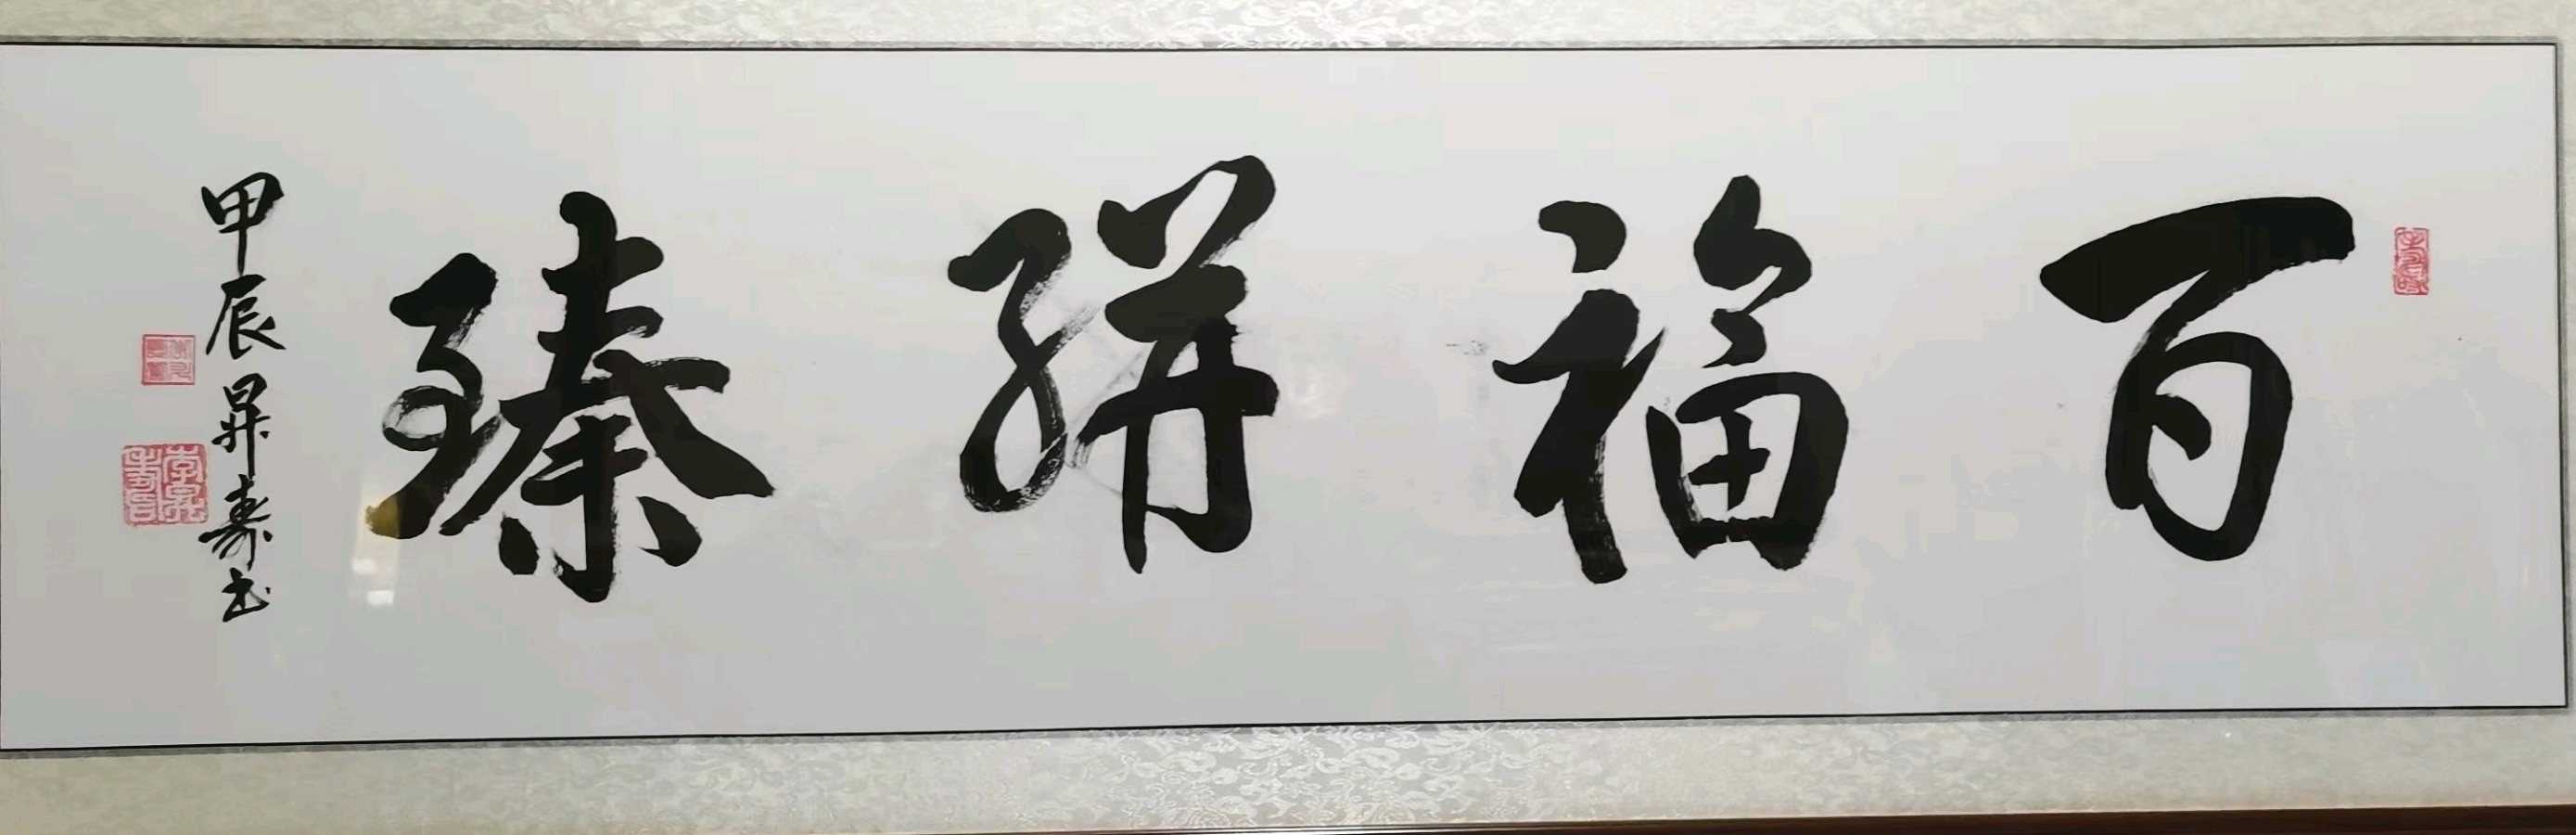 百福骈臻
甲辰昇寿书